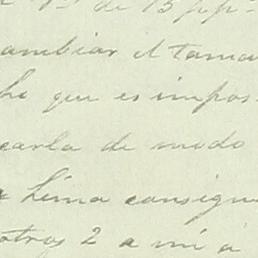 de 13 pp
cambiar el tama
che que es impos
carla de modo
a Lima consigu
otros 2 a mi a